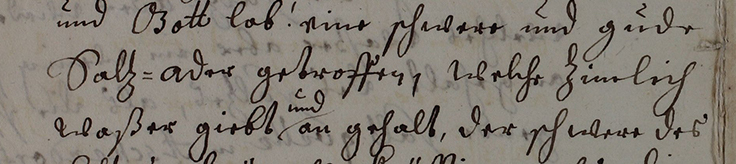 und Gott lob! eine schwere und gude
Saltz=ader getroffen, welche zimlich
waßer giebt und an gehalt, der schwere des